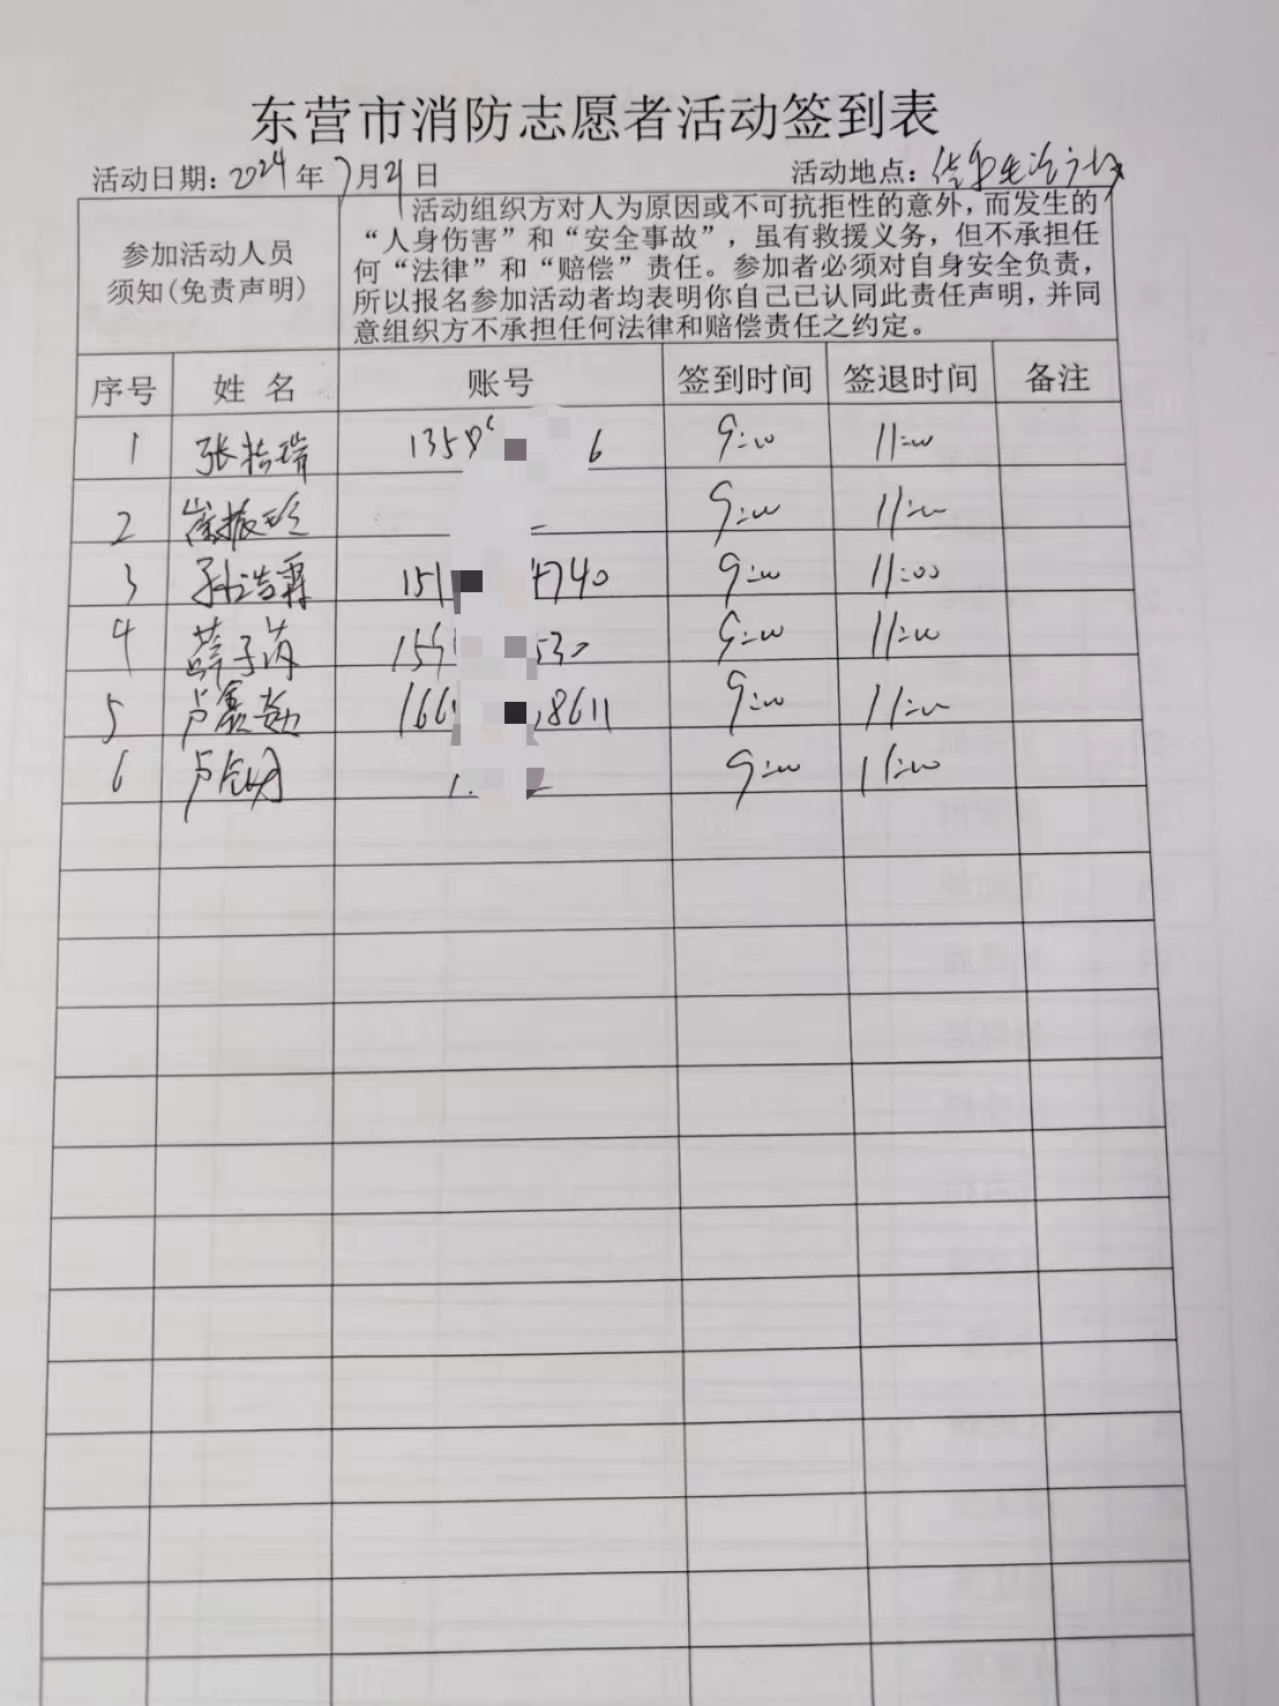 东营市消防志愿者活动签到表
活动日期：2024年7月21日 活动地点：生活广场
参加活动人员
须知(免责声明)
活动组织方对人为原因或不可抗拒性的意外，而发生的
“人身伤害”和“安全事故”，虽有救援义务，但不承担任
何“法律”和“赔偿”责任。参加者必须对自身安全负责，
所以报名参加活动者均表明你自己已认同此责任声明，并同
意组织方不承担任何法律和赔偿责任之约定。
序号 姓名 账号 签到时间 签退时间 备注
1 张 瑞 135 6 9:00 11:00
2 崔振 9:00 11:00
3 孙浩霖 151 4740 9:00 11:00
4 薛子 155 530 9:00 11:00
5 卢 166 8611 9:00 11:00
6 卢 9:00 11:00